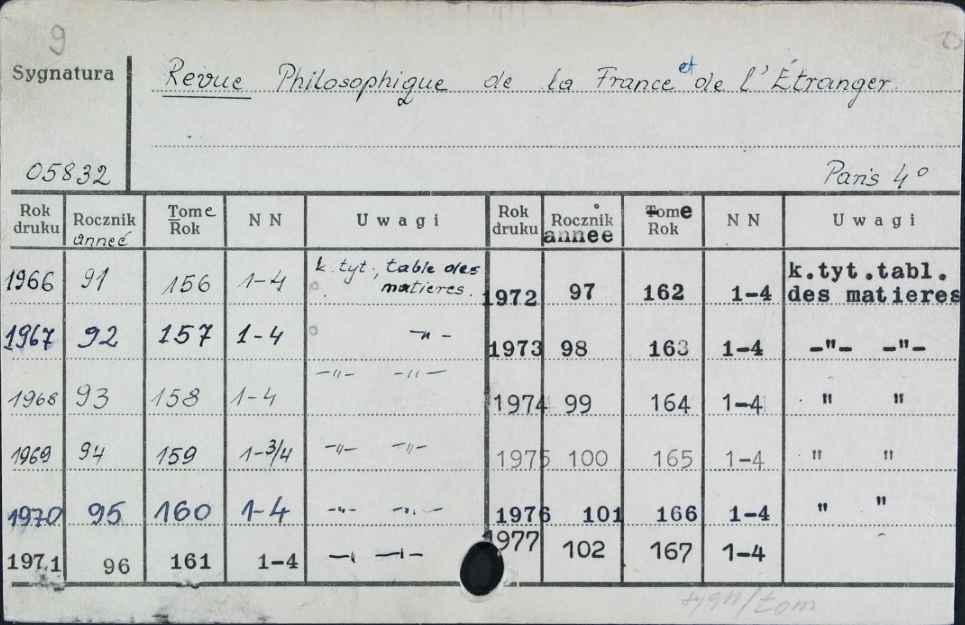 9
Sygnatura Revue Philosophique de la France et de l'Étranger.
05832 Paris 4°
Rok druku Rocznik anneé Tome Rok NN Uwagi Rok druku Rocznik annee Tome Rok NN Uwagi
1966 91 156 1-4 k. tyt., table des matieres. 1972 97 162 1-4 k.tyt.tabl. des matieres
1967 92 157 1-4 -"- 1973 98 163 1-4 -"- -"-
1968 93 158 1-4 -"- -"- 1974 99 164 1-4 " "
1969 94 159 1-3/4 -"- -"- 1975 100 165 1-4 " "
1970 95 160 1-4 -"- -"- 1976 101 166 1-4 " "
1971 96 161 1-4 -"- -"- 1977 102 167 1-4
sygn/tom